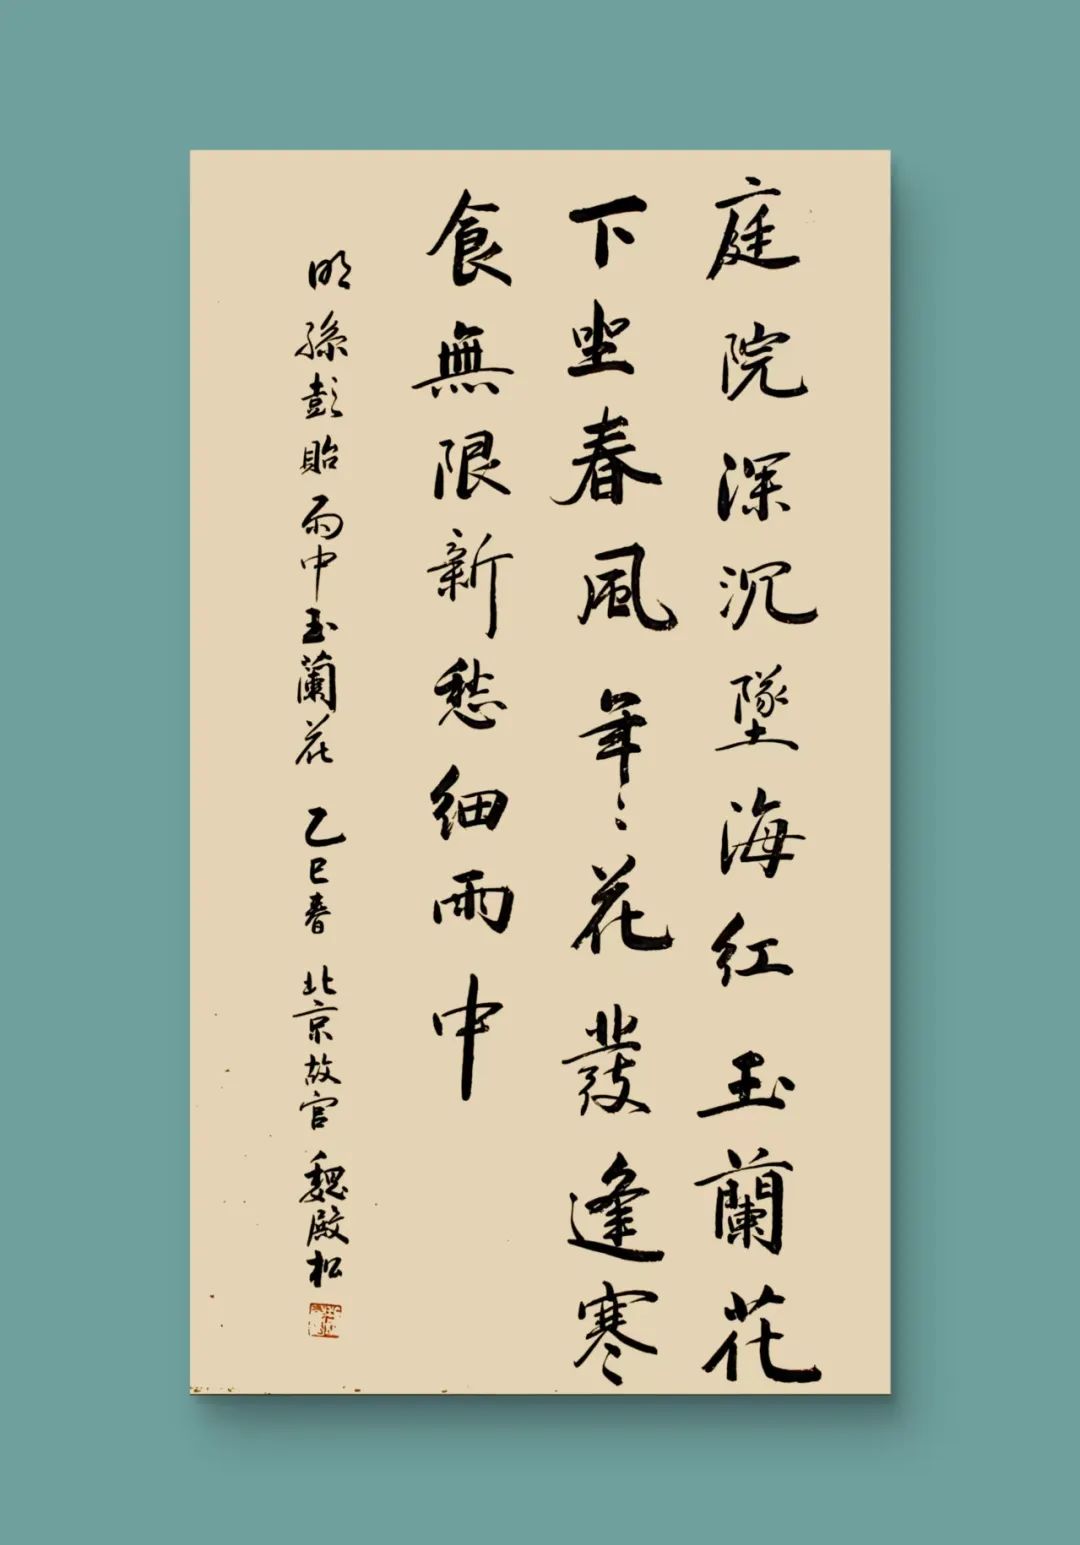 庭院深沉墜海红玉蘭花
下坐春風年〻花發逢寒
食無限新愁细雨中
明孫彭貽雨中玉蘭花 乙巳春 北京故宫 魏殿松